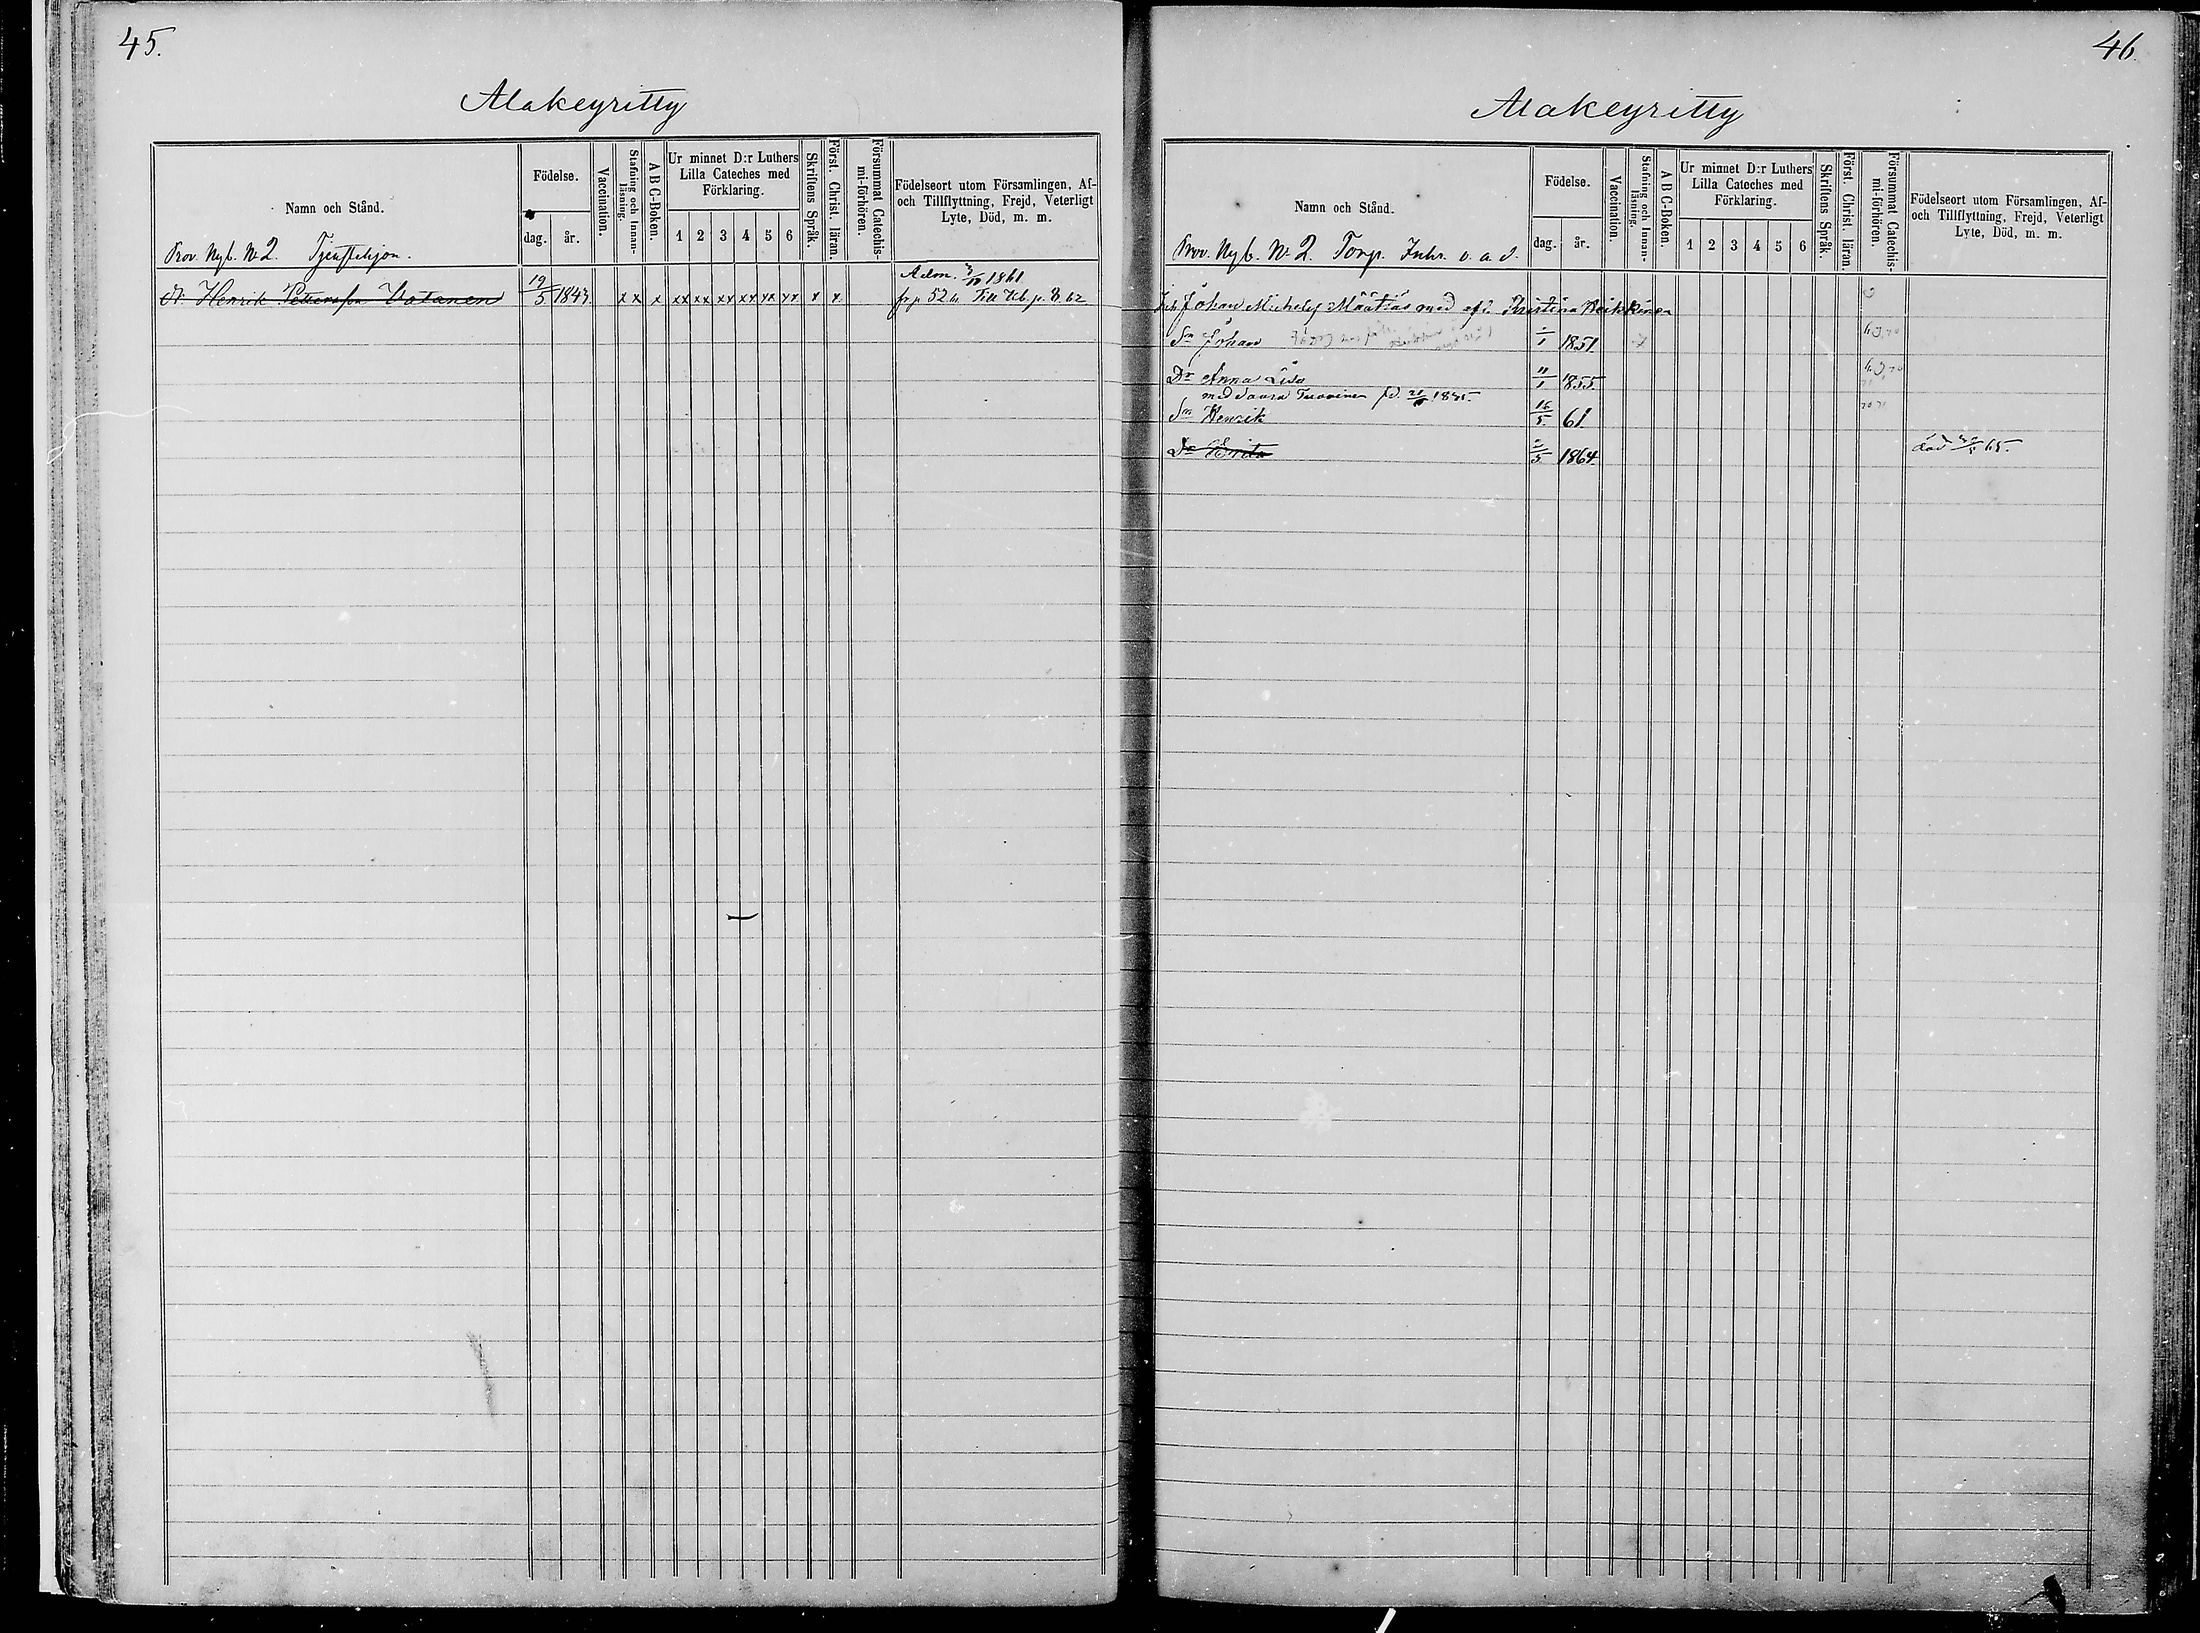 45.
Alakeyritty
Namn och Stånd.
Födelse.
dag. år.
Vaccination.
Stafning och Innan-läsning.
A B C-Boken.
Ur minnet D:r Luthers
Lilla Cateches med
Förklaring.
1 2 3 4 5 6
Skriftens Språk.
Först. Christ. läran.
Försummat Catechis-mi-förhören.
Födelseort utom Församlingen, Af-
och Tillflyttning, Frejd, Veterligt
Lyte, Död, m. m.
Prov. Nyb. No 2. Tjenstehjon.
Adm. 1861
Henrik Pettersson Vatanen 19/5 1843. x x x xx xx xx xx xx xx x x fr p. 52 Till
46.
Alakeyritty
Namn och Stånd.
Födelse.
dag. år.
Vaccination.
Stafning och Innan-läsning.
A B C-Boken.
Ur minnet D:r Luthers
Lilla Cateches med
Förklaring.
1 2 3 4 5 6
Skriftens Språk.
Först. Christ. läran.
Försummat Catechis-mi-förhören.
Födelseort utom Församlingen, Af-
och Tillflyttning, Frejd, Veterligt
Lyte, Död, m. m.
Prov. Nyb. No 2. Torp. Inhs. o. a. d.
Johan Michels Määttäs med
Sn Johan 1851
Dr Anna Lisa 11/1 1855
med
Sn Henrik 16/5 61
Dr Brita 1864 död 65.